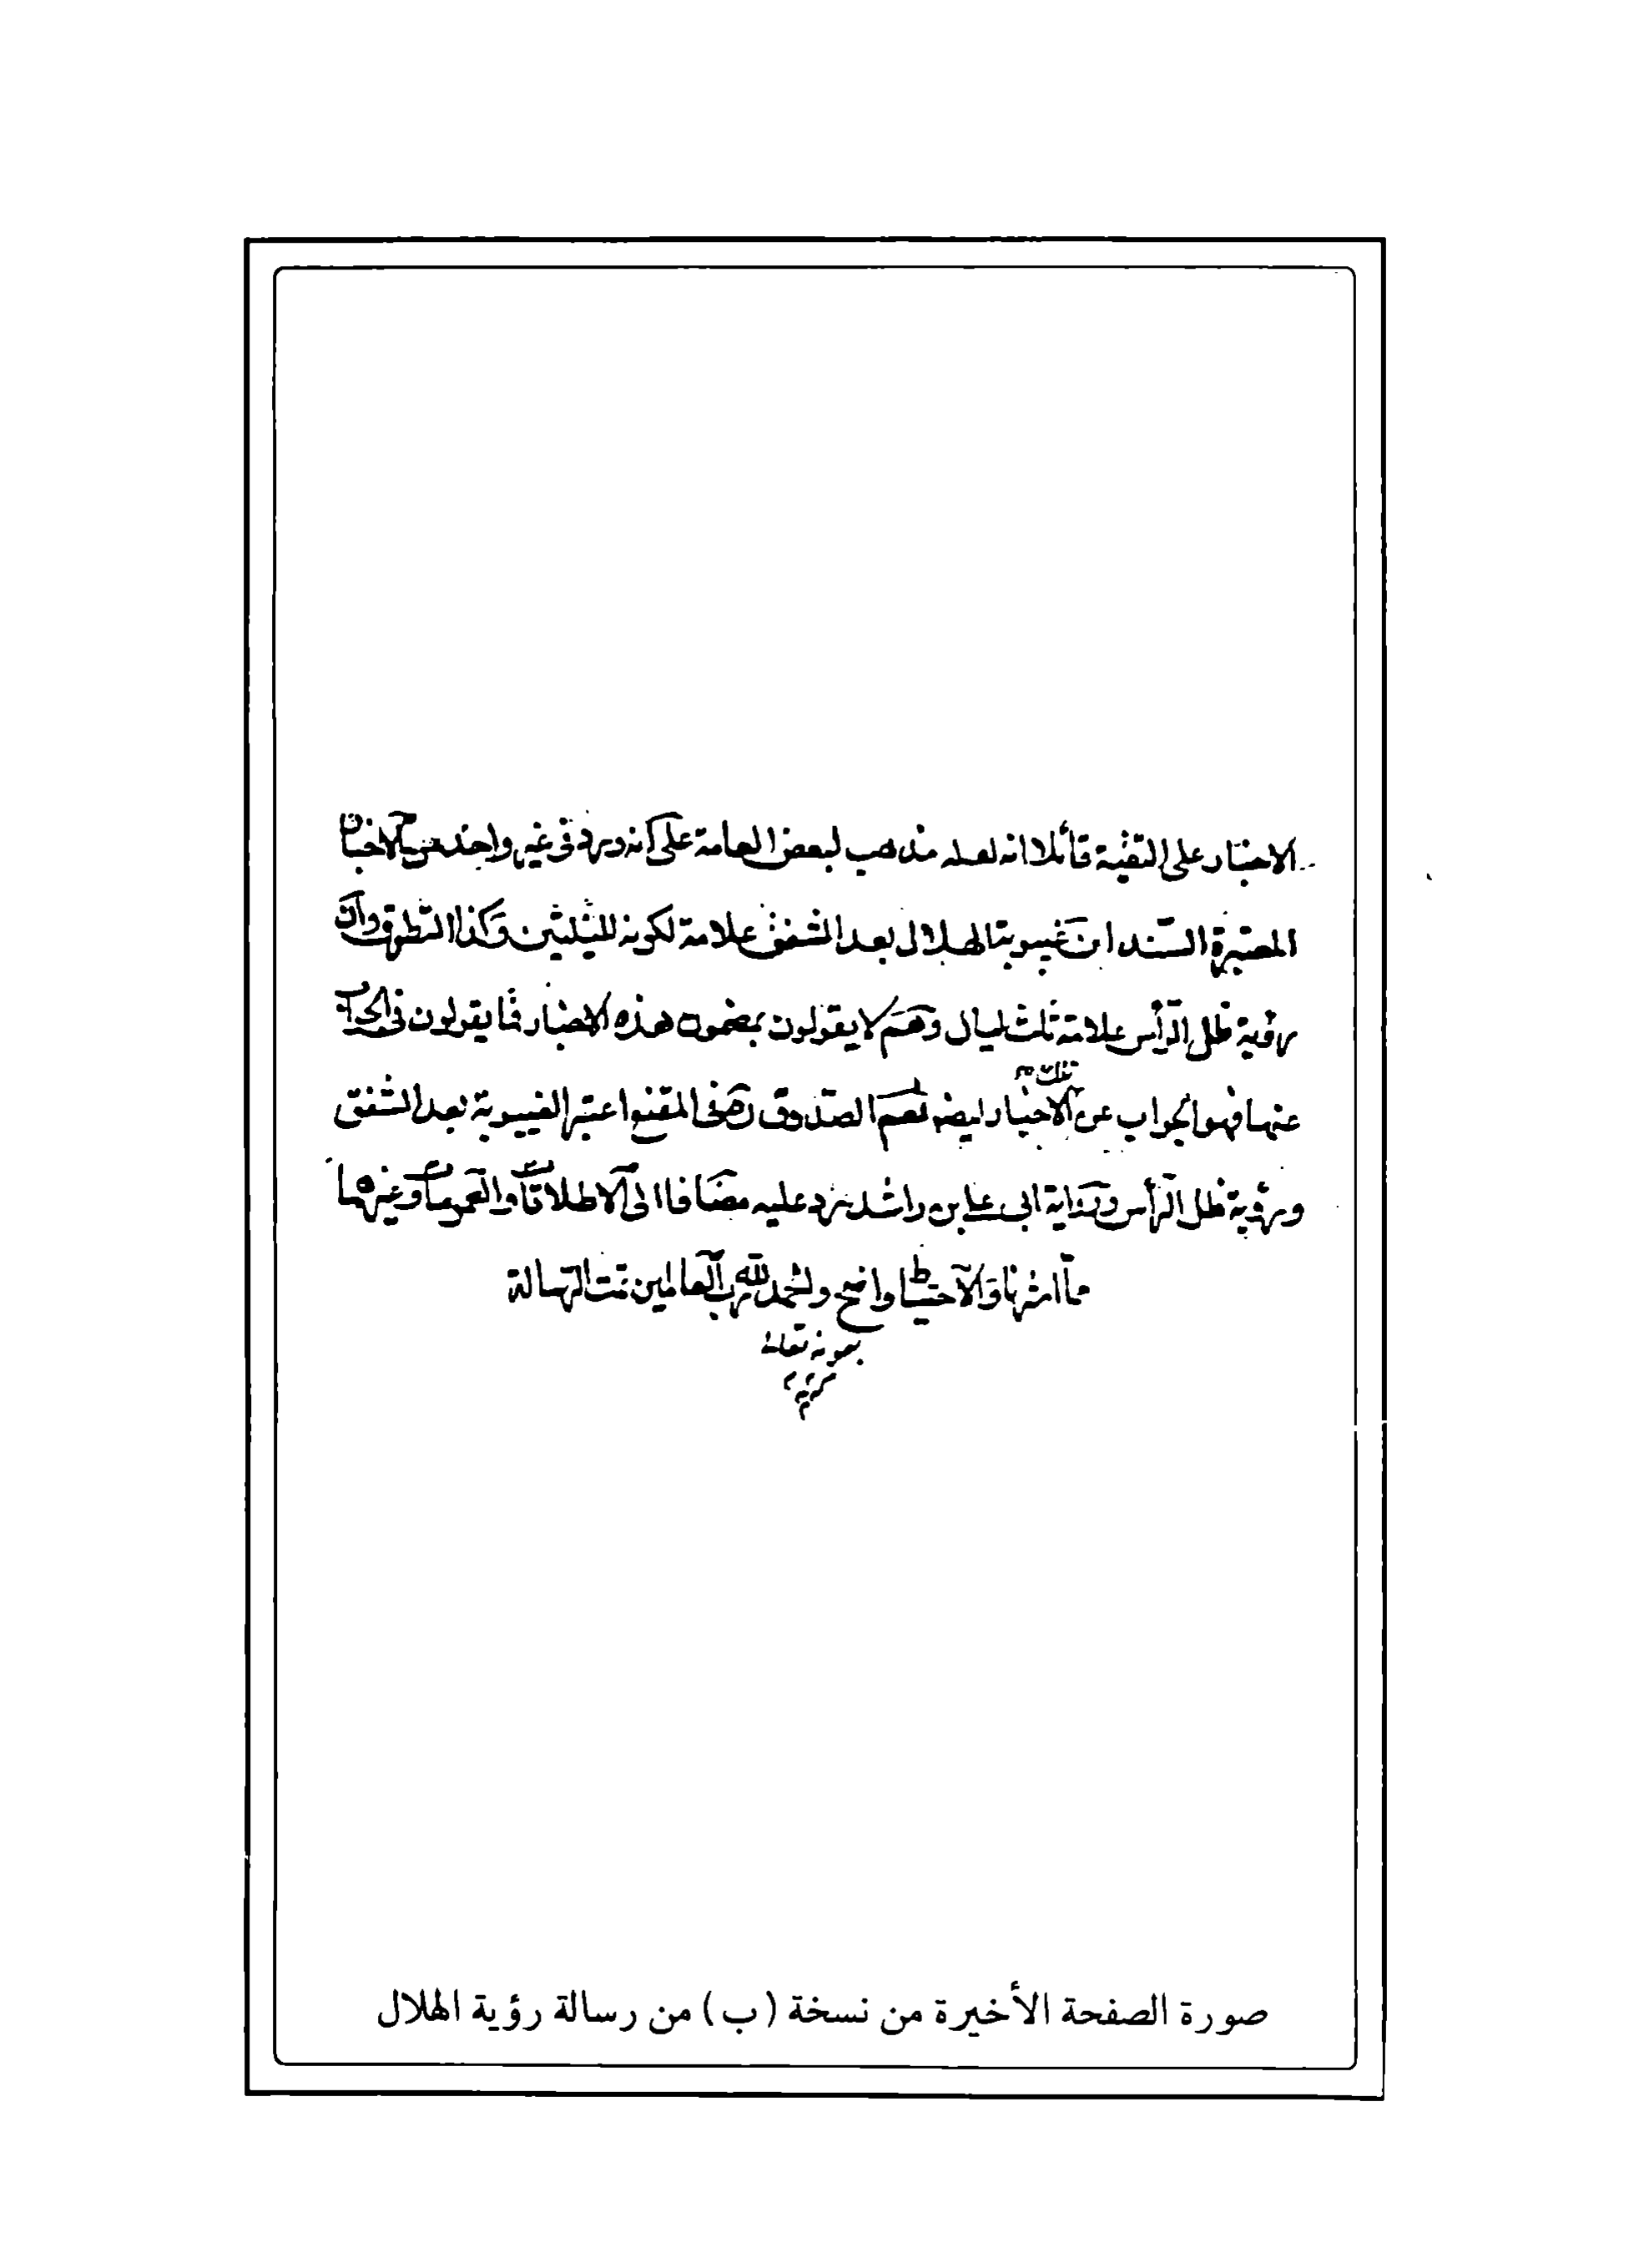 الاخبار على التقية قائلا انه لعله مذهب لبعض العامة على انه ورد في غير واحد من الاخبار
المعتبرة السند ان غيبوبة الهلال بعد الشفق علامة لكونه لليلتين وكذا التطوق وان
رؤية ظل الرأس علامة ثلث ليال وهم لا يقولون بمضمون هذه الاخبار فما يقولون في الجواب
عنها فهو الجواب عن تلك الاخبار ايضا نعم الصدوق ره في المقنع اعتبر الغيبوبة بعد الشفق
ورؤية ظل الرأس ورواية ابي علي بن راشد ترد عليه مضافا الى الاطلاقات والعمومات وغيرهما
مما اشرنا والاحتياط واضح والحمد لله رب العالمين تمت الرسالة
بعونه تعالى
صورة الصفحة الأخيرة من نسخة (ب) من رسالة رؤية الهلال